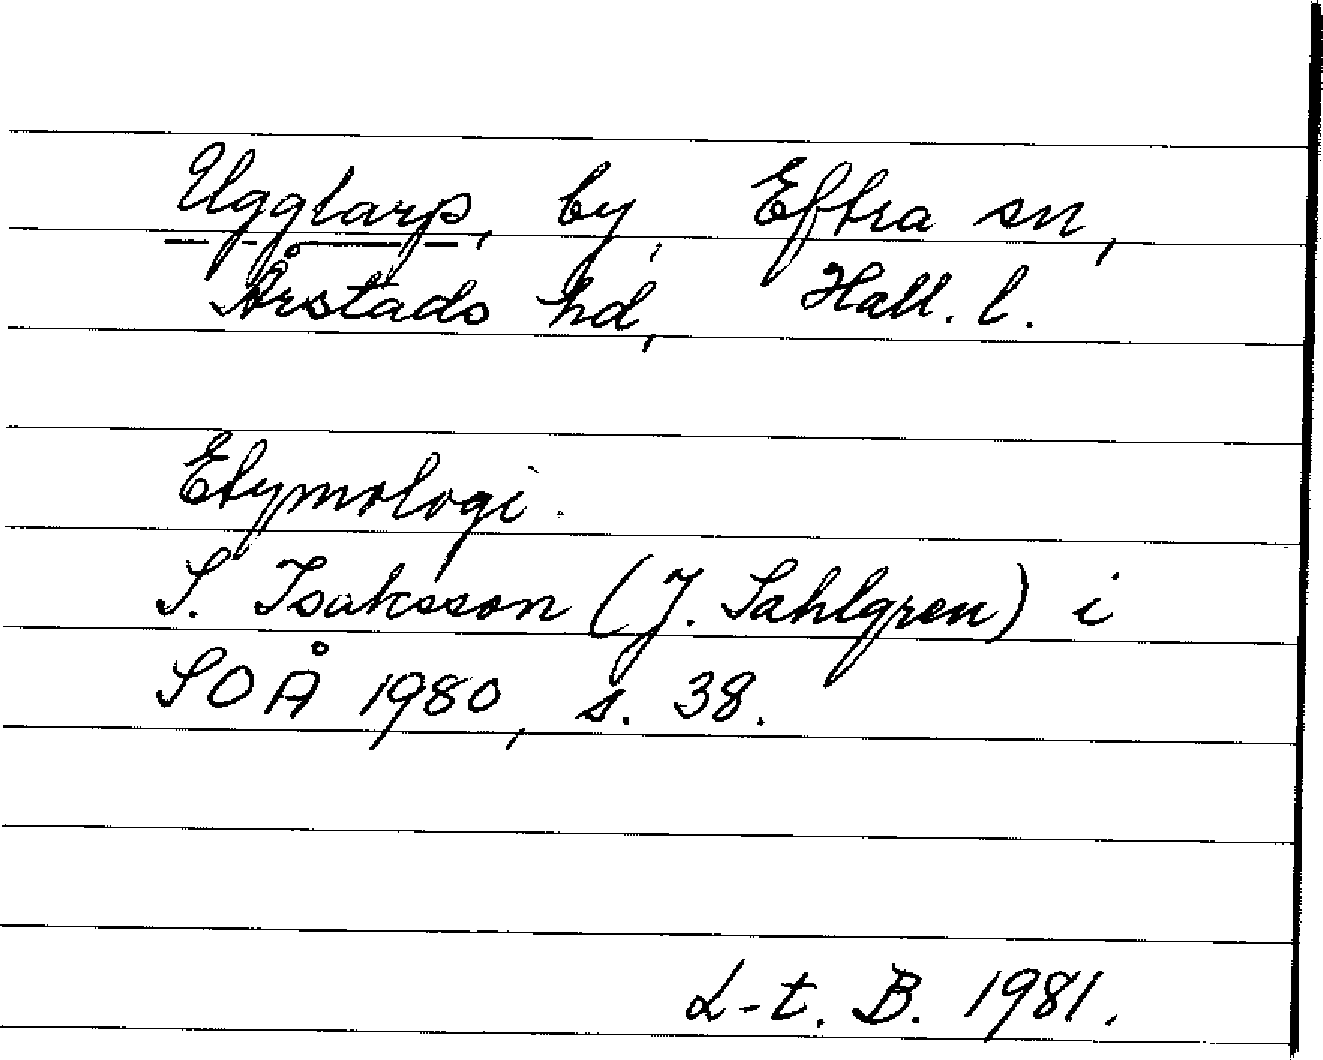 Ugglarp, by, Eftra sn,
Årstads hd, Hall. l.
Etymologi.
S. Isaksson (J. Sahlgren) i
SOÅ 1980, s. 38.
L-t. B. 1981.